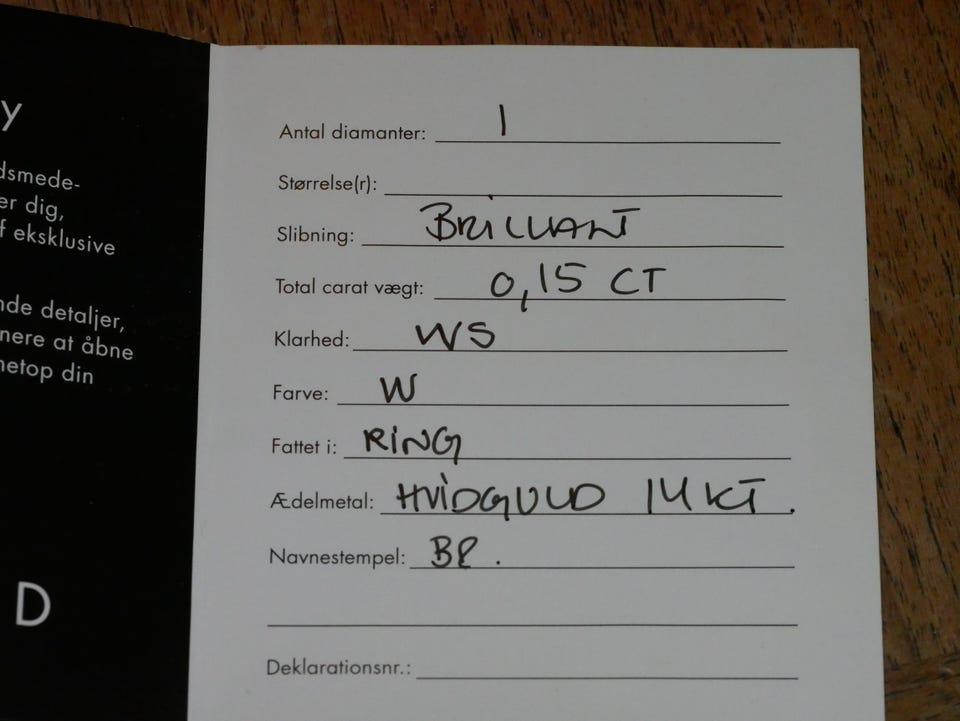 y
dsmede-
er dig,
f eksklusive
nde detaljer,
nere at åbne
netop din
D
Antal diamanter: 1
Størrelse(r):
Slibning: BRILLIANT
Total carat vægt: 0,15 CT
Klarhed: VVS
Farve: W
Fattet i: RING
Ædelmetal: HVIDGULD 14 KT.
Navnestempel: BR.
Deklarationsnr.: